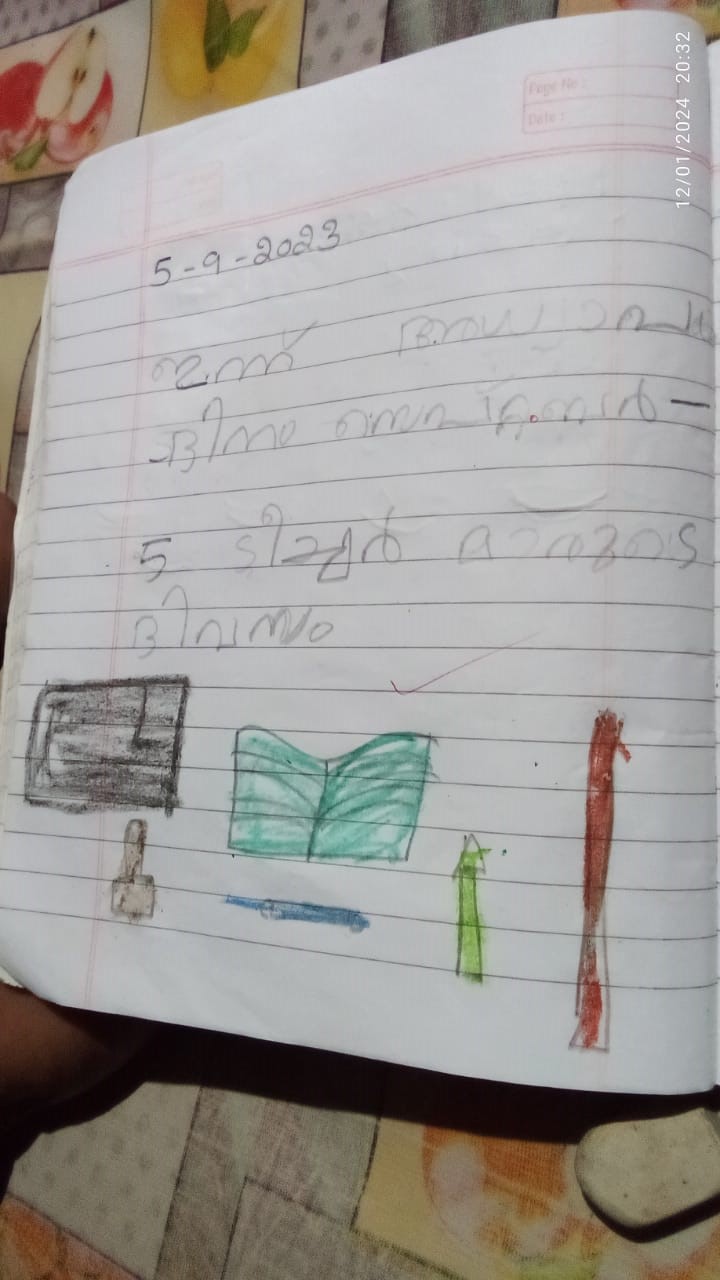 12/01/2024 20:32
Page No :
Date :
5-9-2023
ഇന്ന് അധ്യാപക
ദിനം സെപ്റ്റംബർ-
5 ടീച്ചർ മാരുടെ
ദിവസം